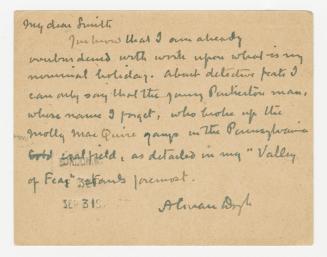 My dear Smith
You know that I am already
overburdened with work upon what is my
nominal holiday. About detective feats I
can only say that the young Pinkerton man,
whose name I forget, who broke up the
Molly MacQuire gangs in the Pennsylvania
Gold coalfield, as detailed in my "Valley
of Fear" stands foremost.
SEP 3 19
A Conan Doyle